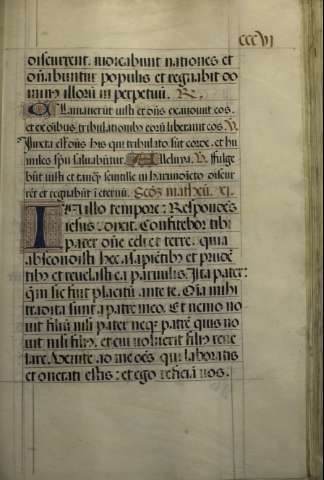 cccvi
discurrent. iudicabunt nationes et
dñabuntur populis et regnabit do
minus illorū in perpetuū. R.
Clamauerūt iusti et dñs exaudiuit eos.
et ex oĩbus tribulationibꝰ eorū liberauit eos. V.
Iuxta est dñs his qui tribulato sūt corde. et hu
miles spū saluabūtur. Alleluya. V. Fulge
būt iusti et tanqȝ scintille in harundĩeto discur
rēt et regnabūt ī eternū. Secȝ matheū. xi.
In illo tempore: Respondēs
iesus: dixit. Confiteor tibi
pater dñe celi et terre. quia
abscondisti hec a sapiētibꝰ et prudē
tibꝰ et reuelasti ea paruulis. Ita pater:
qm̃ sic fuit placitū ante te. Oīa mihi
tradita sunt a patre meo. Et nemo no
uit filiū nisi pater neqȝ patrē quis no
uit nisi filiꝰ. et cui uoluerit filiꝰ reue
lare. Uenite ad me oēs qui laboratis
et onerati estis: et ego reficiā uos.